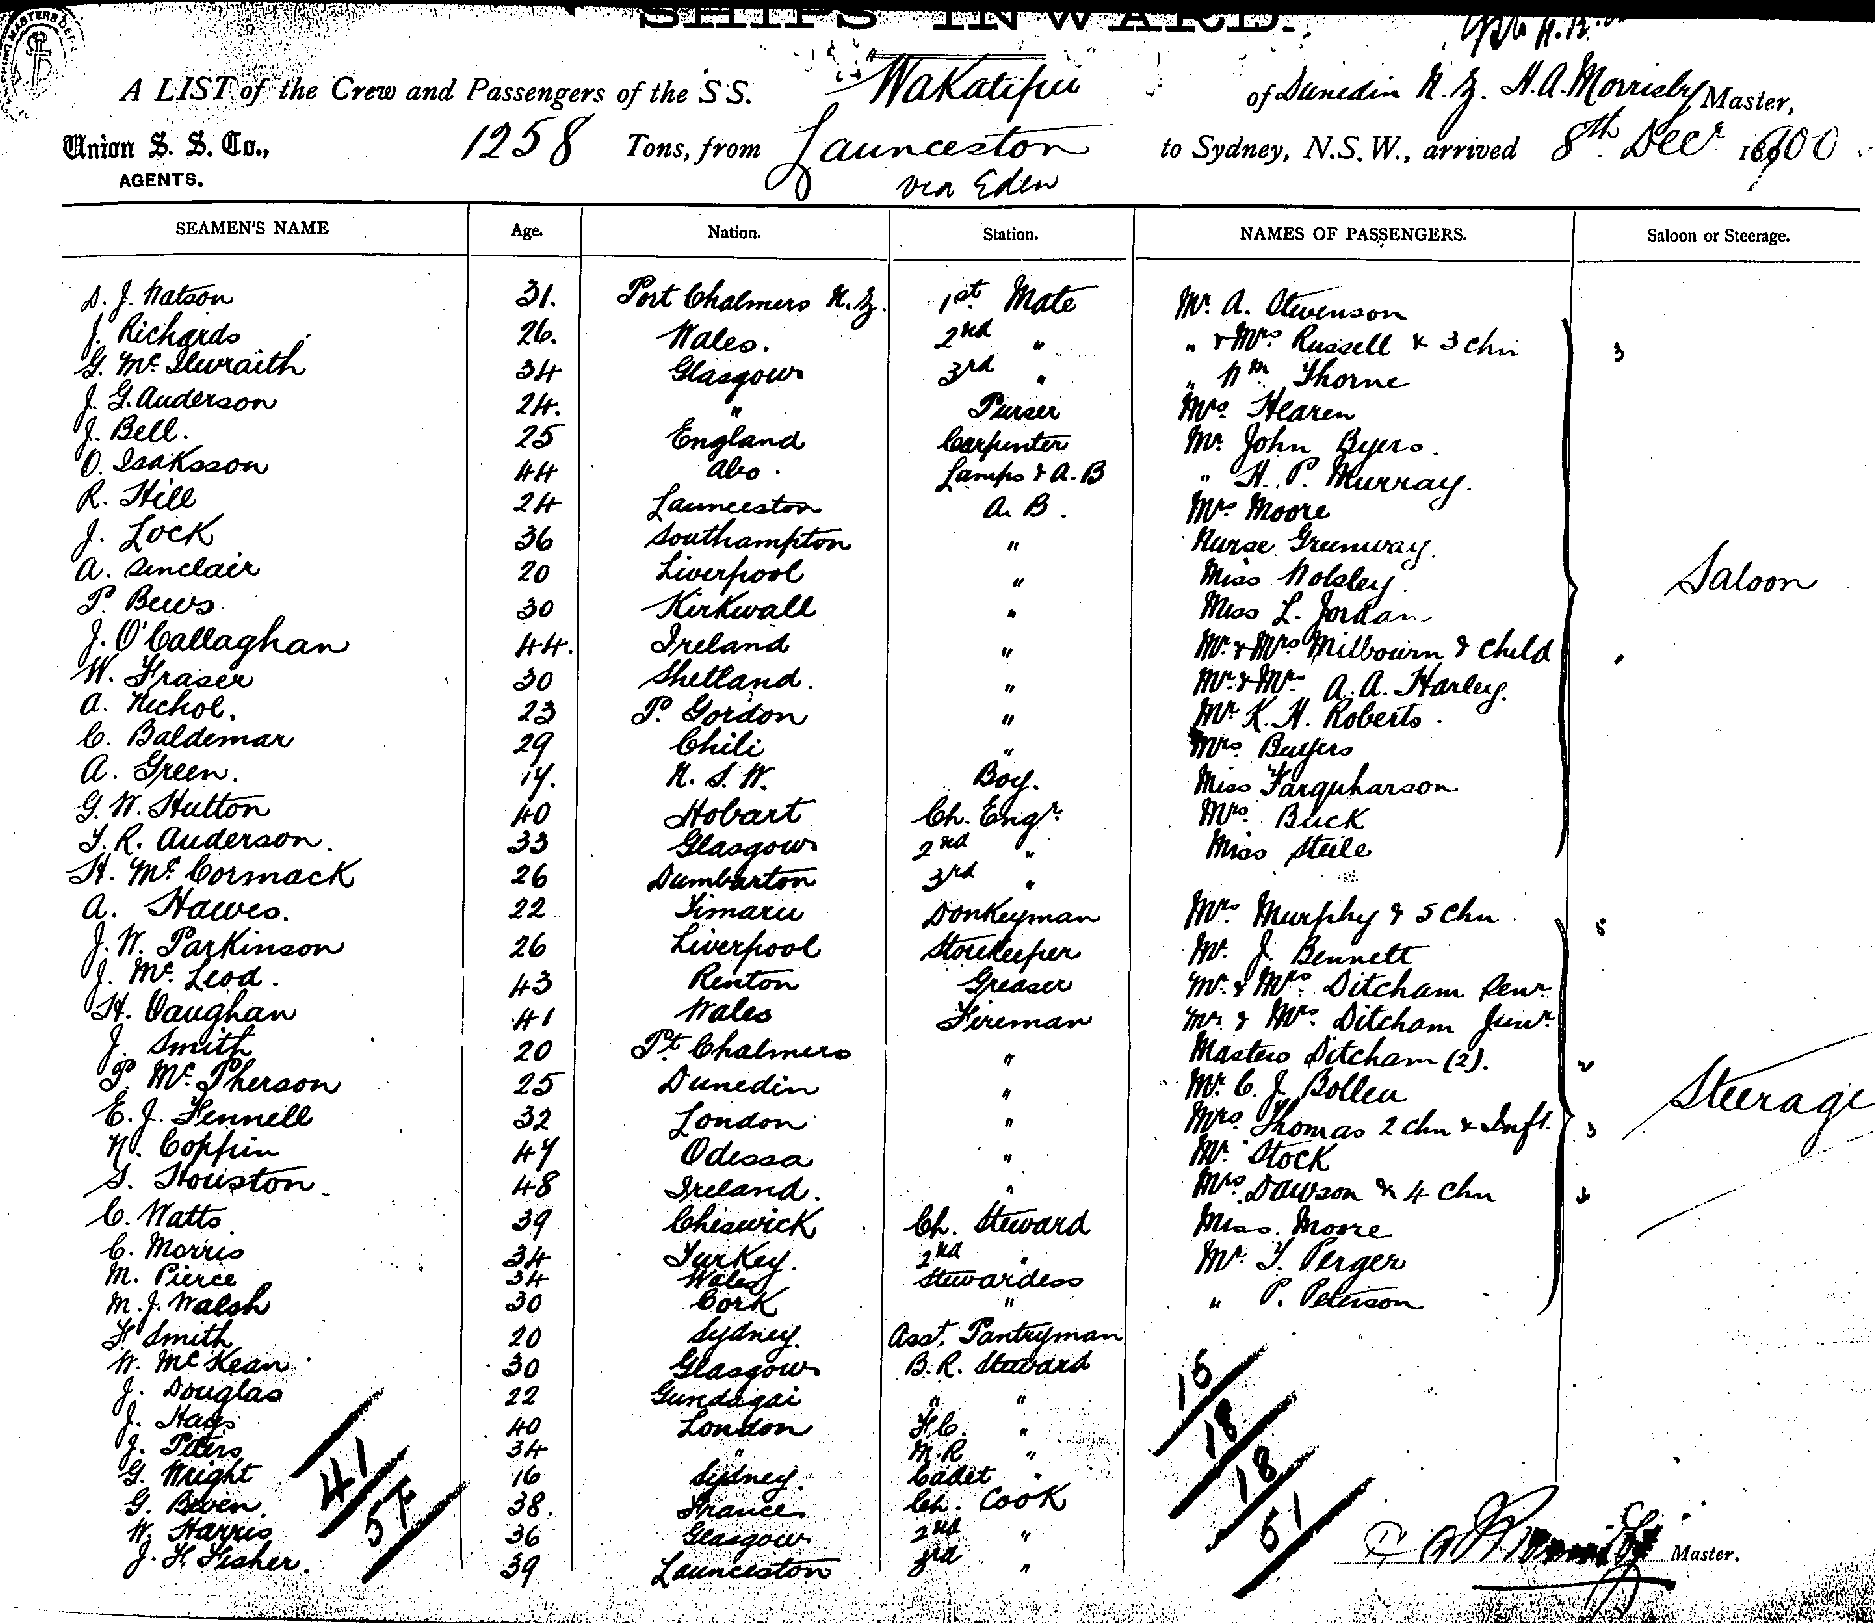 SHIPS INWARD.
A LIST of the Crew and Passengers of the S.S. Wakatipu of Dunedin N.Z. H.A. Morrisby Master,
Union S. S. Co., 1258 Tons, from Launceston to Sydney, N.S.W., arrived 8th Decr 1900
AGENTS. via Eden
SEAMEN'S NAME Age. Nation. Station. NAMES OF PASSENGERS. Saloon or Steerage.
D. J. Watson 31. Port Chalmers N.Z. 1st Mate Mr. A. Stevenson
J. Richards 26. Wales. 2nd " " & Mrs Russell & 3 chn 3
G. McIlwraith 34 Glasgow 3rd " " Wm Thorne
J. G. Anderson 24. " Purser Mrs Hearen
J. Bell. 25 England Carpenter Mr John Byers.
O. Isaksson 44 Abo. Lamps & A.B " H. P. Murray.
R. Hill 24 Launceston A. B. Mrs Moore
J. Lock 36 Southampton " Nurse Greenway.
A. Sinclair 20 Liverpool " Miss Wolsley
P. Bews 30 Kirkwall " Miss L. Jordan
Saloon
J. O'Callaghan 44. Ireland " Mr & Mrs Milbourn & Child
W. Fraser 30 Shetland. " Mr & Mrs A. A. Harley.
A. Nichol. 23 P. Gordon " Mr K. H. Roberts.
C. Baldemar 29 Chili " Mrs Buyers
A. Green. 17. N. S. W. Boy. Miss Farquharson
G. W. Hutton 40 Hobart Ch. Engr. Mrs. Buck
T. R. Anderson. 33 Glasgow 2nd " Miss Steile
H. McCormack 26 Dumbarton 3rd "
A. Hawes. 22 Timaru Donkeyman Mrs Murphy & 5 Chn 5
J. W. Parkinson 26 Liverpool Storekeeper Mr. J. Bennett
J. McLeod. 43 Renton Greaser Mr. & Mrs. Ditcham Senr
H. Vaughan 41 Wales Fireman Mr & Mrs. Ditcham Junr.
J. Smith 20 Pt Chalmers " Masters Ditcham (2). 2
P. McPherson 25 Dunedin " Mr. C. J. Bollen
Steerage
E. J. Fennell 32 London " Mrs. Thomas 2 chn & Inft. 3
N. Coppin 47 Odessa " Mr. Stock
S. Houston. 48 Ireland. " Mrs Dawson & 4 Chn
C. Watts 39 Cheswick Ch. Steward Miss. Moore
C. Morris 34 Turkey. 2nd " Mr. T. Perger
M. Pierce 34 Wales Stewardess
M. J. Walsh 30 Cork " " P. Peterson
F. Smith 20 Sydney. Asst. Pantryman
W. McKean 30 Glasgow B.R. Steward
J. Douglas 22 Gundagai " "
J. Hays 40 London F.C. "
J. Peters 34 " M.R "
G. Wright 16 Sydney. Cadet "
G. Bwen. 38. France Ch. Cook
W. Harris 36 Glasgow 2nd "
J. H. Fisher. 39 Launceston 3rd "
41
57
15
18
18
51
Master.